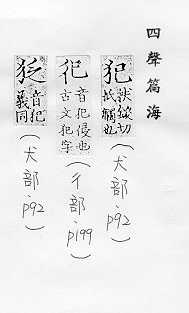 四聲篇海
犯
切
觸也
(犬部.p92)
音犯侵也
古文犯字
(彳部.p199)
音犯
義同
(犬部.p92)